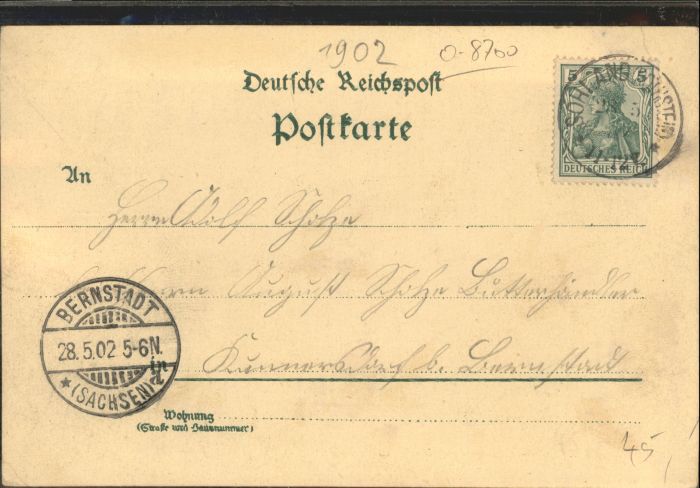 1902 0-8700
Deutsche Reichspost
Postkarte
5 5
SOHLAND
DEUTSCHES REICH
An
Herrn Adolf Scholze
Herrn August Scholze Butterhändler
in
Kunnersdorf b. Bernstadt
BERNSTADT
28.5.02 5-6N.
* (SACHSEN)
Wohnung
(Straße und Hausnummer)
45